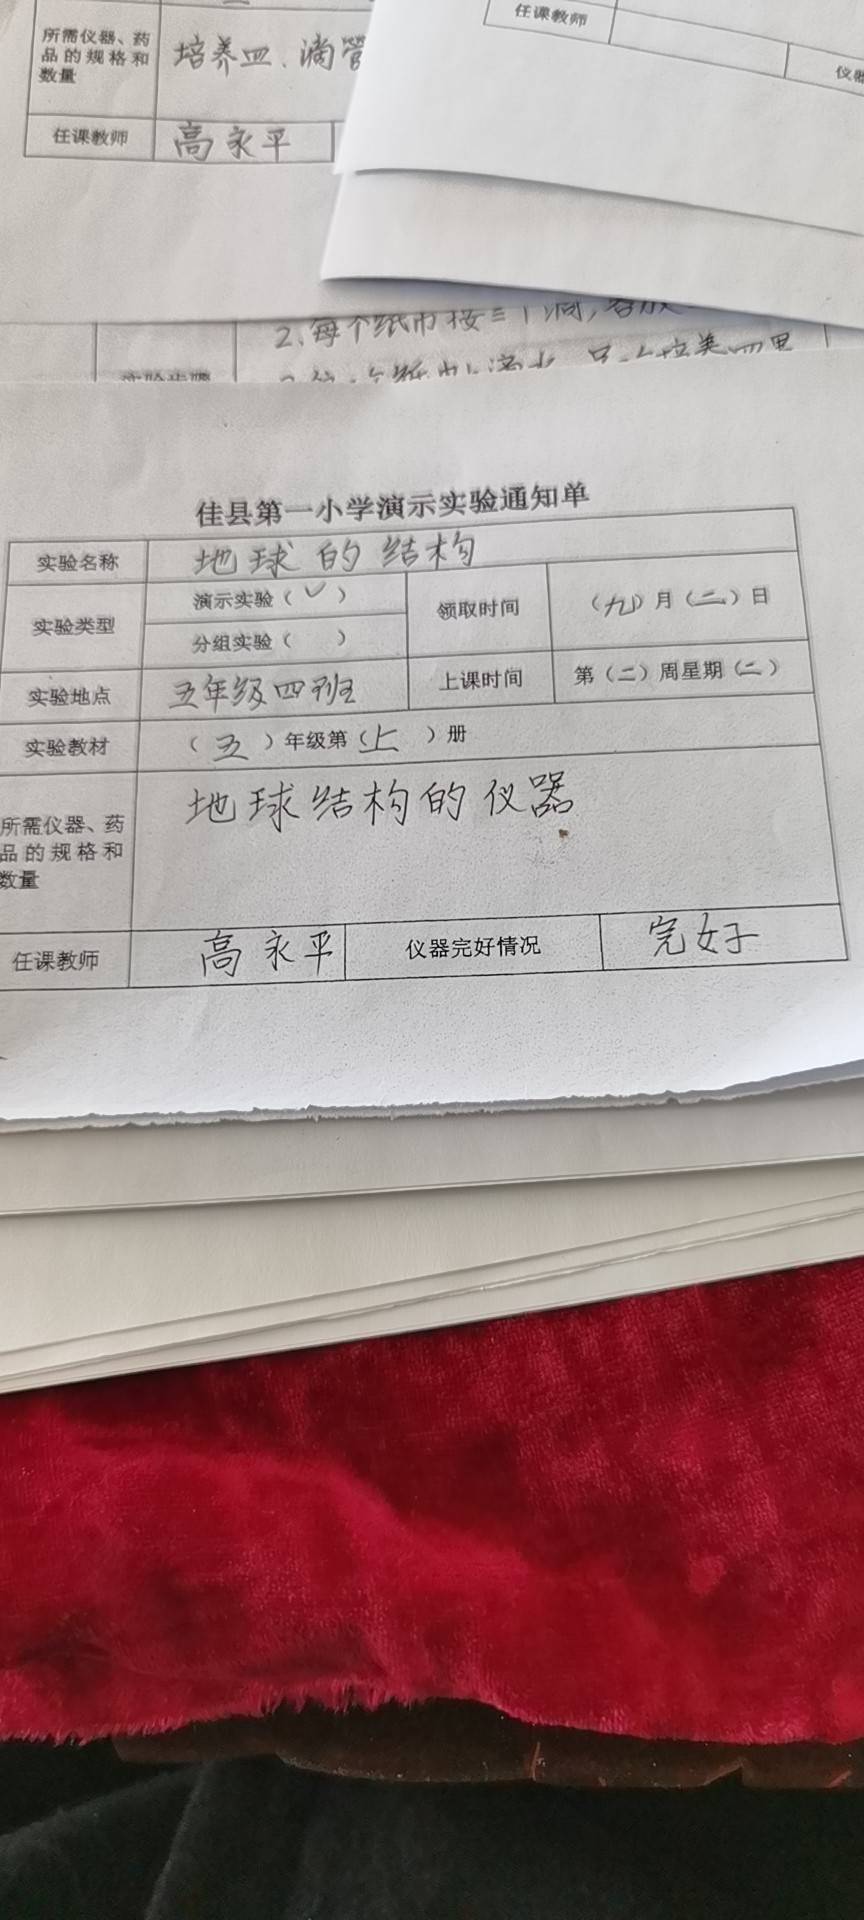 任课教师
仪器
所需仪器、药
品的规格和
数量
培养皿、滴管
任课教师 高永平
2、每个纸巾按
实验步骤
佳县第一小学演示实验通知单
实验名称 地球的结构
实验类型 演示实验（✓） 领取时间 （九）月（二）日
分组实验（ ）
实验地点 五年级四班 上课时间 第（二）周星期（二）
实验教材 （五）年级第（上）册
所需仪器、药
品的规格和
数量
地球结构的仪器
任课教师 高永平 仪器完好情况 完好